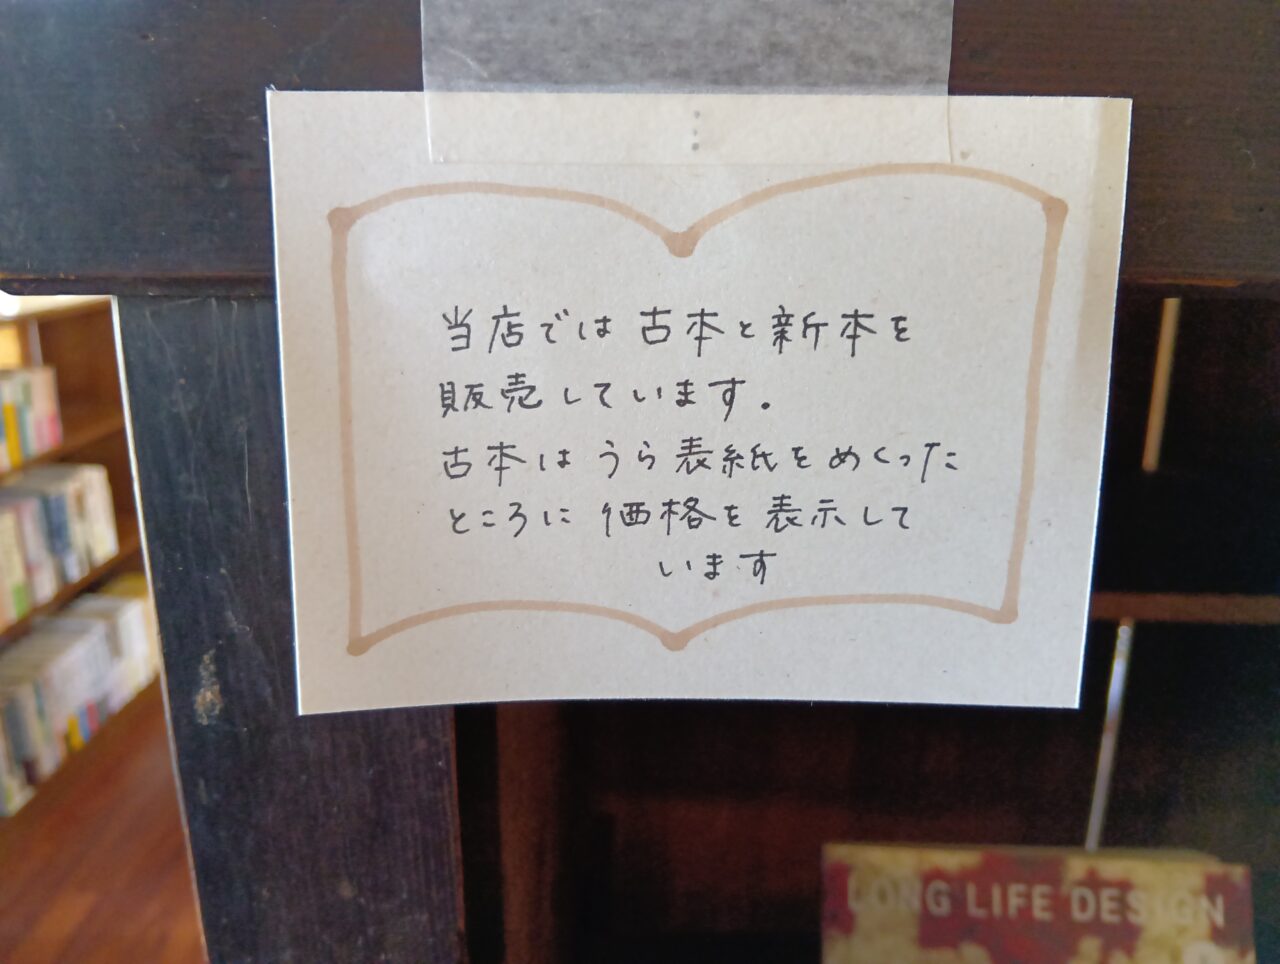 当店では古本と新本を
販売しています。
古本はうら表紙をめくった
ところに価格を表示して
います
LONG LIFE DESIGN